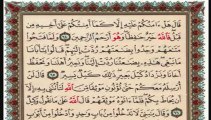 قَالَ هَلْ ءَامَنُكُمْ عَلَيْهِ إِلَّا كَمَآ أَمِنتُكُمْ عَلَىٰٓ أَخِيهِ مِن
قَبْلُ فَٱللَّهُ خَيْرٌ حَٰفِظًا وَهُوَ أَرْحَمُ ٱلرَّٰحِمِينَ ٦٤ وَلَمَّا فَتَحُوا۟
مَتَٰعَهُمْ وَجَدُوا۟ بِضَٰعَتَهُمْ رُدَّتْ إِلَيْهِمْ قَالُوا۟ يَٰٓأَبَانَا مَا
نَبْغِى هَٰذِهِۦ بِضَٰعَتُنَا رُدَّتْ إِلَيْنَا وَنَمِيرُ أَهْلَنَا وَنَحْفَظُ
أَخَانَا وَنَزْدَادُ كَيْلَ بَعِيرٍ ذَٰلِكَ كَيْلٌ يَسِيرٌ ٦٥ قَالَ لَنْ
أُرْسِلَهُۥ مَعَكُمْ حَتَّىٰ تُؤْتُونِ مَوْثِقًا مِّنَ ٱللَّهِ لَتَأْتُنَّنِى بِهِۦٓ إِلَّآ
أَن يُحَاطَ بِكُمْ فَلَمَّآ ءَاتَوْهُ مَوْثِقَهُمْ قَالَ ٱللَّهُ عَلَىٰ مَا نَقُولُ
وَكِيلٌ ٦٦ وَقَالَ يَٰبَنِىَّ لَا تَدْخُلُوا۟ مِنۢ بَابٍ وَٰحِدٍ